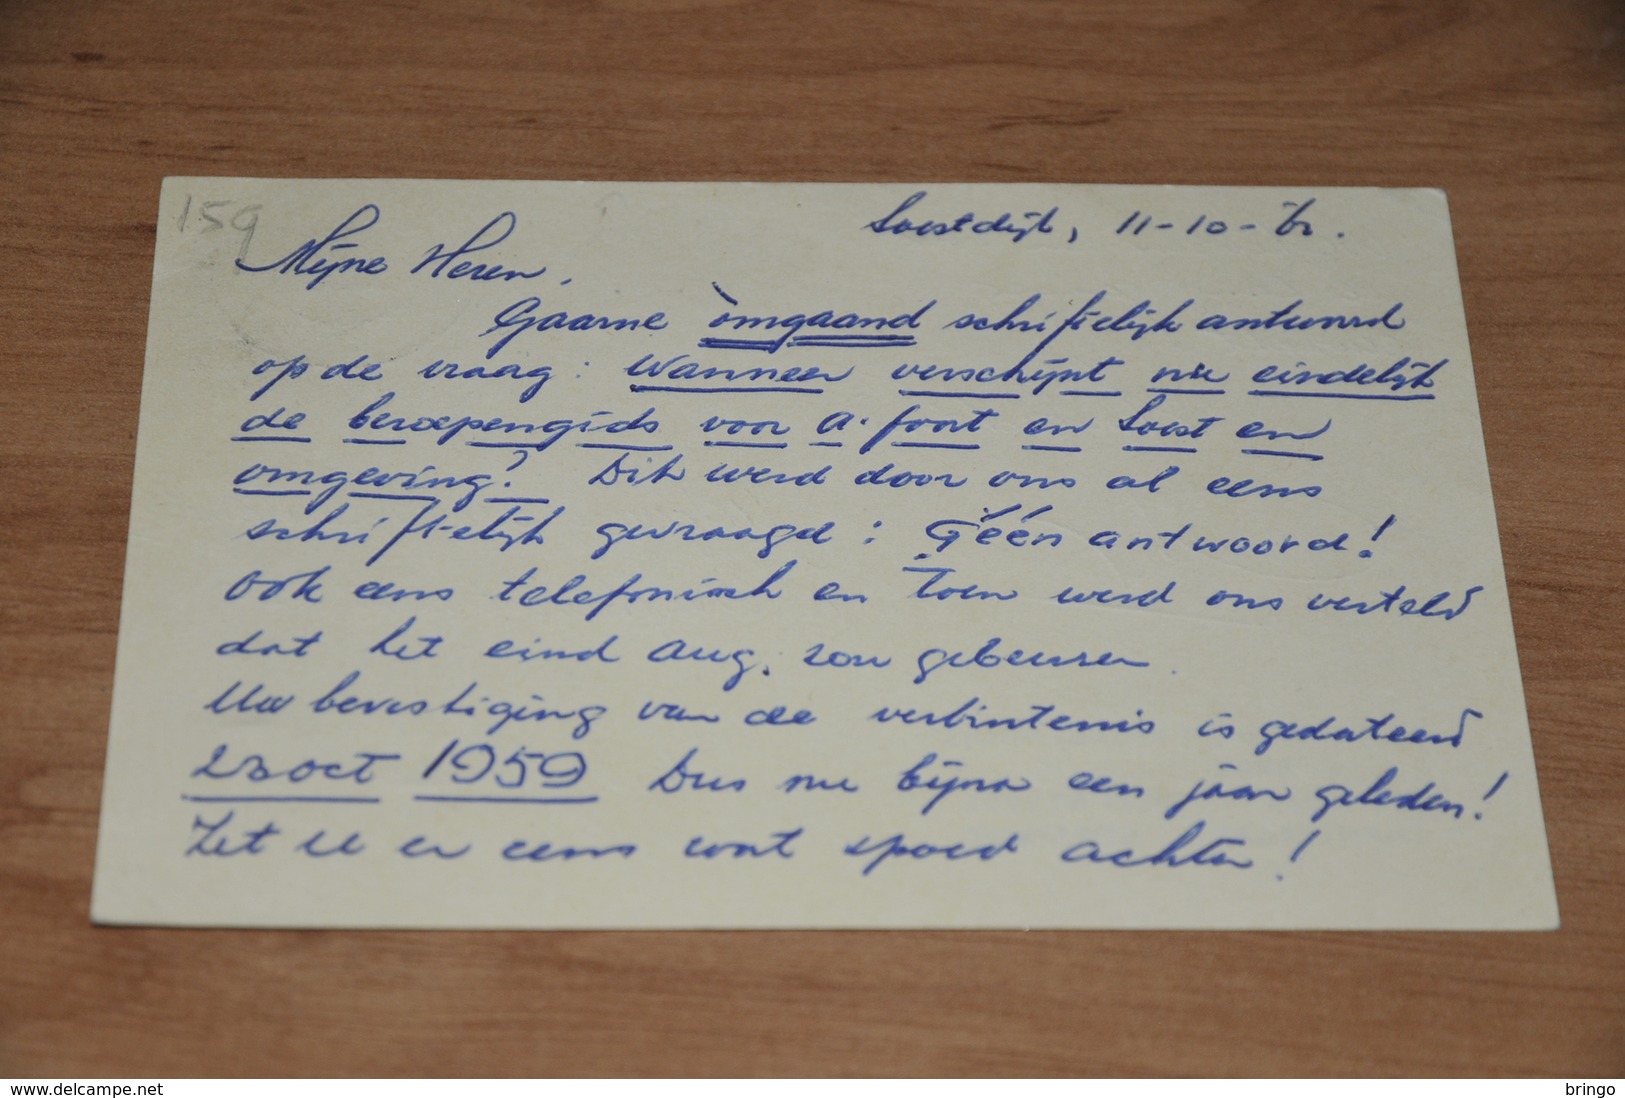 159
Soestdijk, 11-10-
Mijne Heren,
Gaarne omgaand schriftelijk antwoord
op de vraag: Wanneer verschijnt nu eindelijk
de beroepengids voor A.foort en Soest en
omgeving? Dit werd door ons al eens
schriftelijk gevraagd: Géén antwoord!
Ook eens telefonisch en toen werd ons verteld
dat het eind Aug. zou gebeuren.
Uw bevestiging van de verbintenis is gedateerd
23 oct 1959 Dus nu bijna een jaar geleden!
Zet U er eens wat spoed achter!
www.delcampe.net
bringo